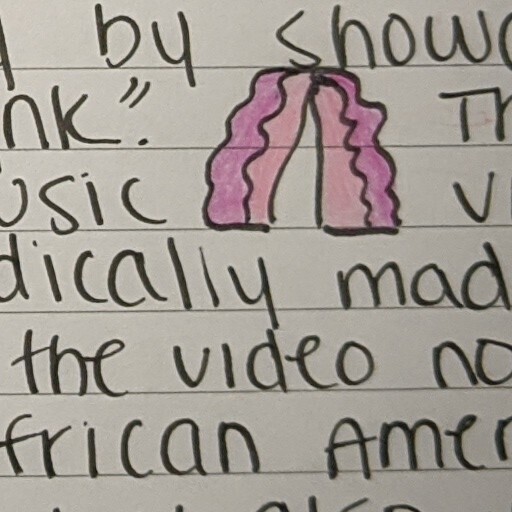 by show
nk". Th
usic v
dically mad
the video no
frican Amer